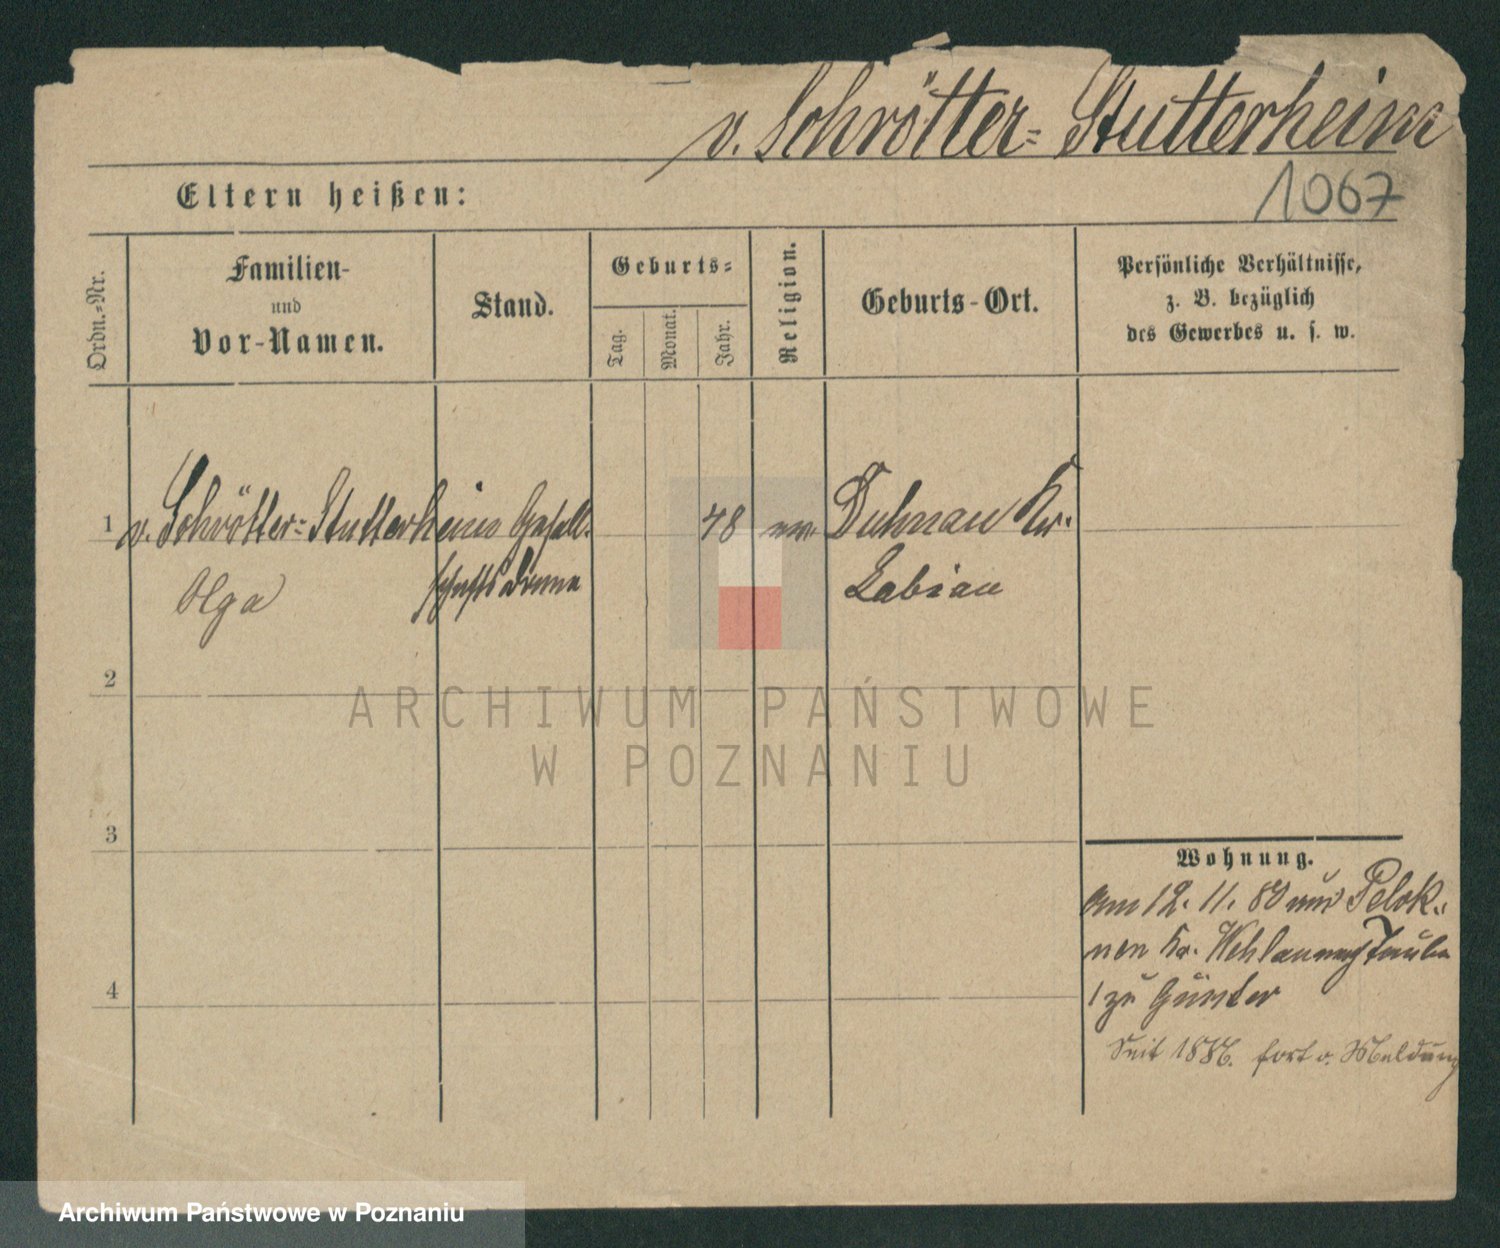 v. Schrötter= Stutterheim
1067
Eltern heißen:
Ordn.-Nr.
Familien-
und
Vor-Namen.
Stand.
Geburts=
Tag.
Monat.
Jahr.
Religion.
Geburts-Ort.
Persönliche Verhältnisse,
z. B. bezüglich
des Gewerbes u. s. w.
1 v. Schrötter= Stutterheim Gesell- 48 ev. Duhnau Kr.
Olga schaftsdame Labiau
2
3
4
Wohnung.
am 12. 11. 80 aus Pelok=
nen Kr. Wehlau
1 zu Günter
Seit 1886. fort o. Meldung
ARCHIWUM PAŃSTWOWE
W POZNANIU
Archiwum Państwowe w Poznaniu